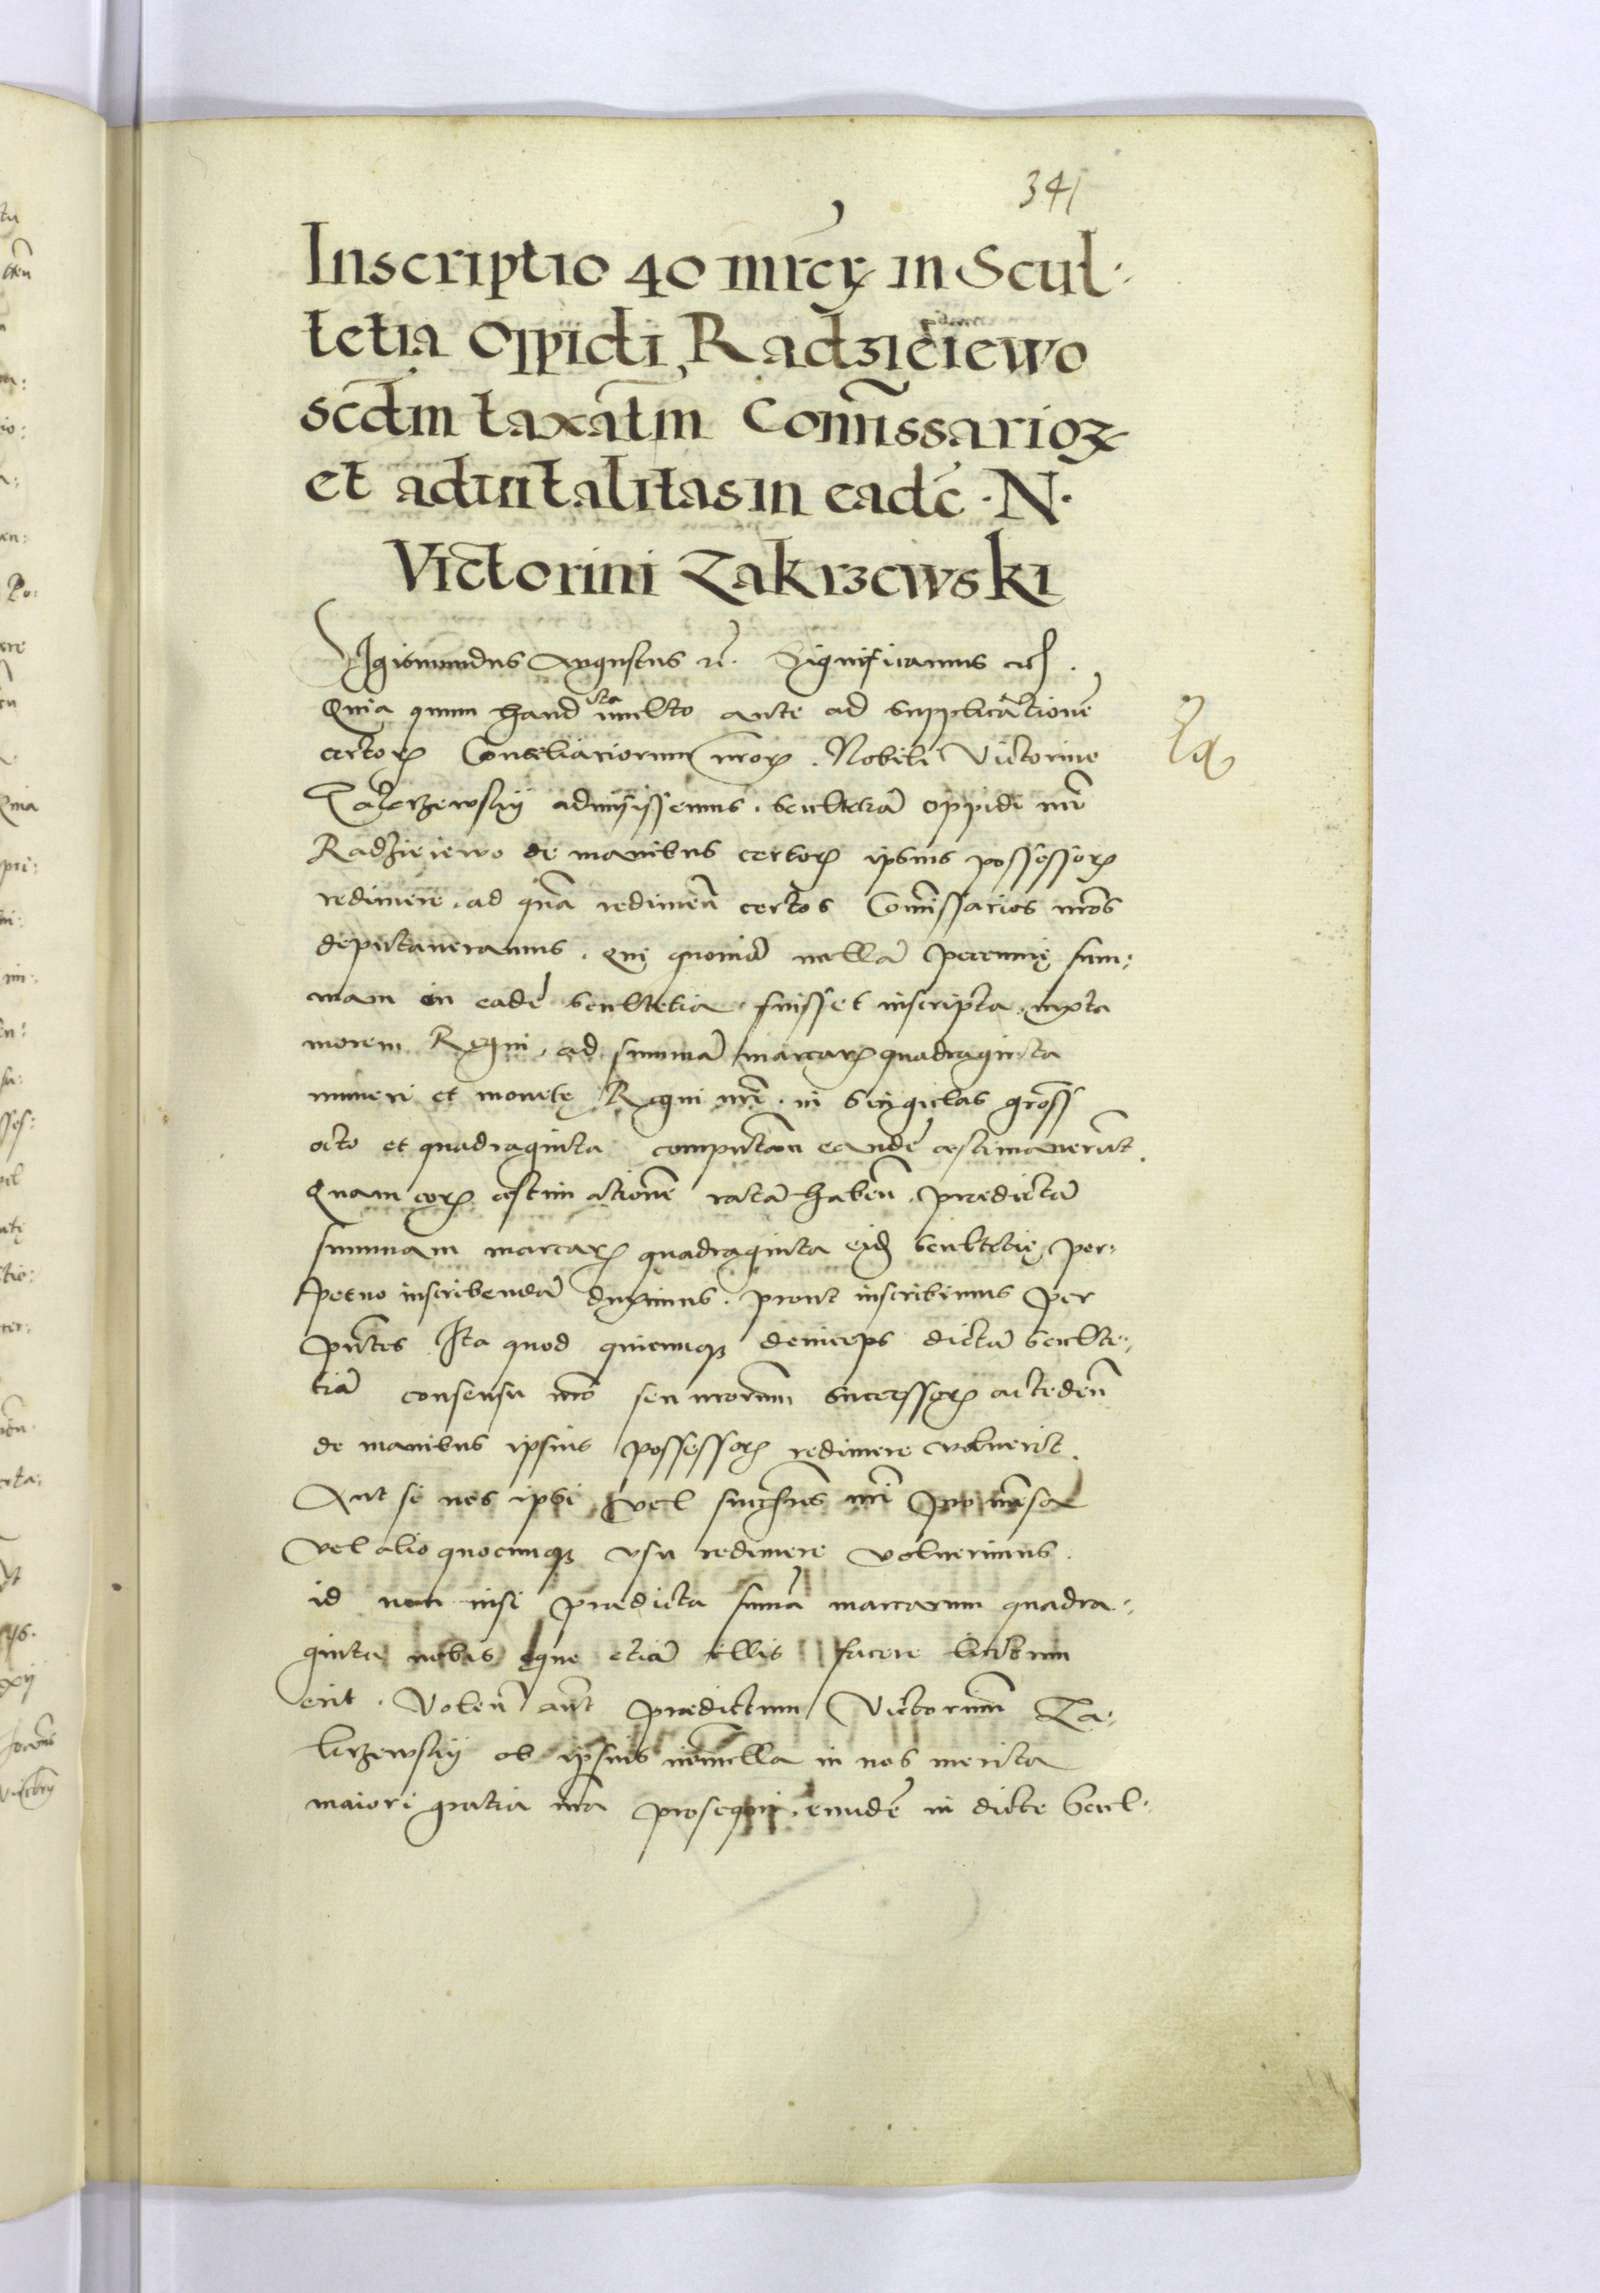 341
Inscriptio 40 mrcꝝ in Scul-
tetia Oppidi Radzieiewo
scdm taxatm Comissarioꝝ
et aduitalitas in eadē .N.
Victorini Zakrzewski
Sigismundus Augustus rc. Significamus etc.
Quia quum haud ita multo ante ad supplicationē
certoꝝ Consiliariorum nroꝝ. Nobili Victorino
Zakrzewskij admisissemus. scultetiā oppidi nri
Radzieiewo de manibus certoꝝ ipsius possessoꝝ
redimere. ad quā redimen̄ certos Com̄issarios nros
deputaueramus. Qui quoniā nullā pecunię sum-
mam in eadē scultetia fuisset inscripta, iuxta
morem Regni, ad summā marcaꝝ quadraginta
numeri et monetę Regni nri. in singulas gross
octo et quadraginta computan̄ eandē aestimauerūt.
Quam eoꝝ aestimationē ratā haben̄. praedictā
summam marcaꝝ quadraginta eid scultetię per-
petuo inscribendā duximus. prout inscribimus per
pn̄tes. Ita quod quicunqꝫ deinceps dictā sculte-
tiā consensu nr̄o seu nrorum successoꝝ acceden̄
de manibus ipsius possessoꝝ redimere voluerit.
Aut si nos ipsi vel success nri pro mensa
vel alio quocunqꝫ vsu redimere voluerimus.
id non nisi praedicta sum̄a marcarum quadra-
ginta nobis eque etiā illis facere licitum
erit. Volen̄ aut praedictum Victorinum Za-
krzewskij ob ipsius nonnulla in nos merita
maiori gratia nr̄a prosequi. eundē in dicte scul-
Za